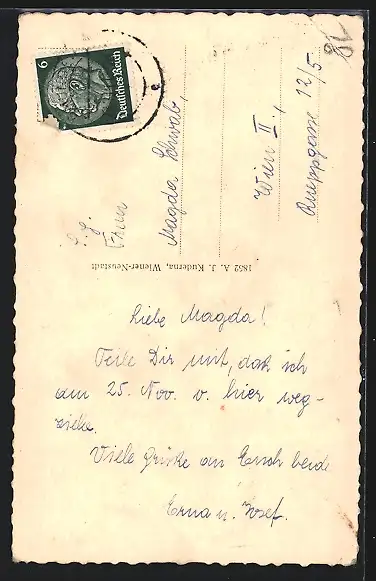 6
Deutsches Reich
Frau
Magda Schwab,
Wien II.,
Rueppgasse 12/5
1852 A. J. Kuderna, Wiener-Neustadt
Liebe Magda!
Teile Dir mit, daß ich
am 25. Nov. v. hier weg-
ziehe.
Viele Grüße an Euch beide
Erna u. Josef.